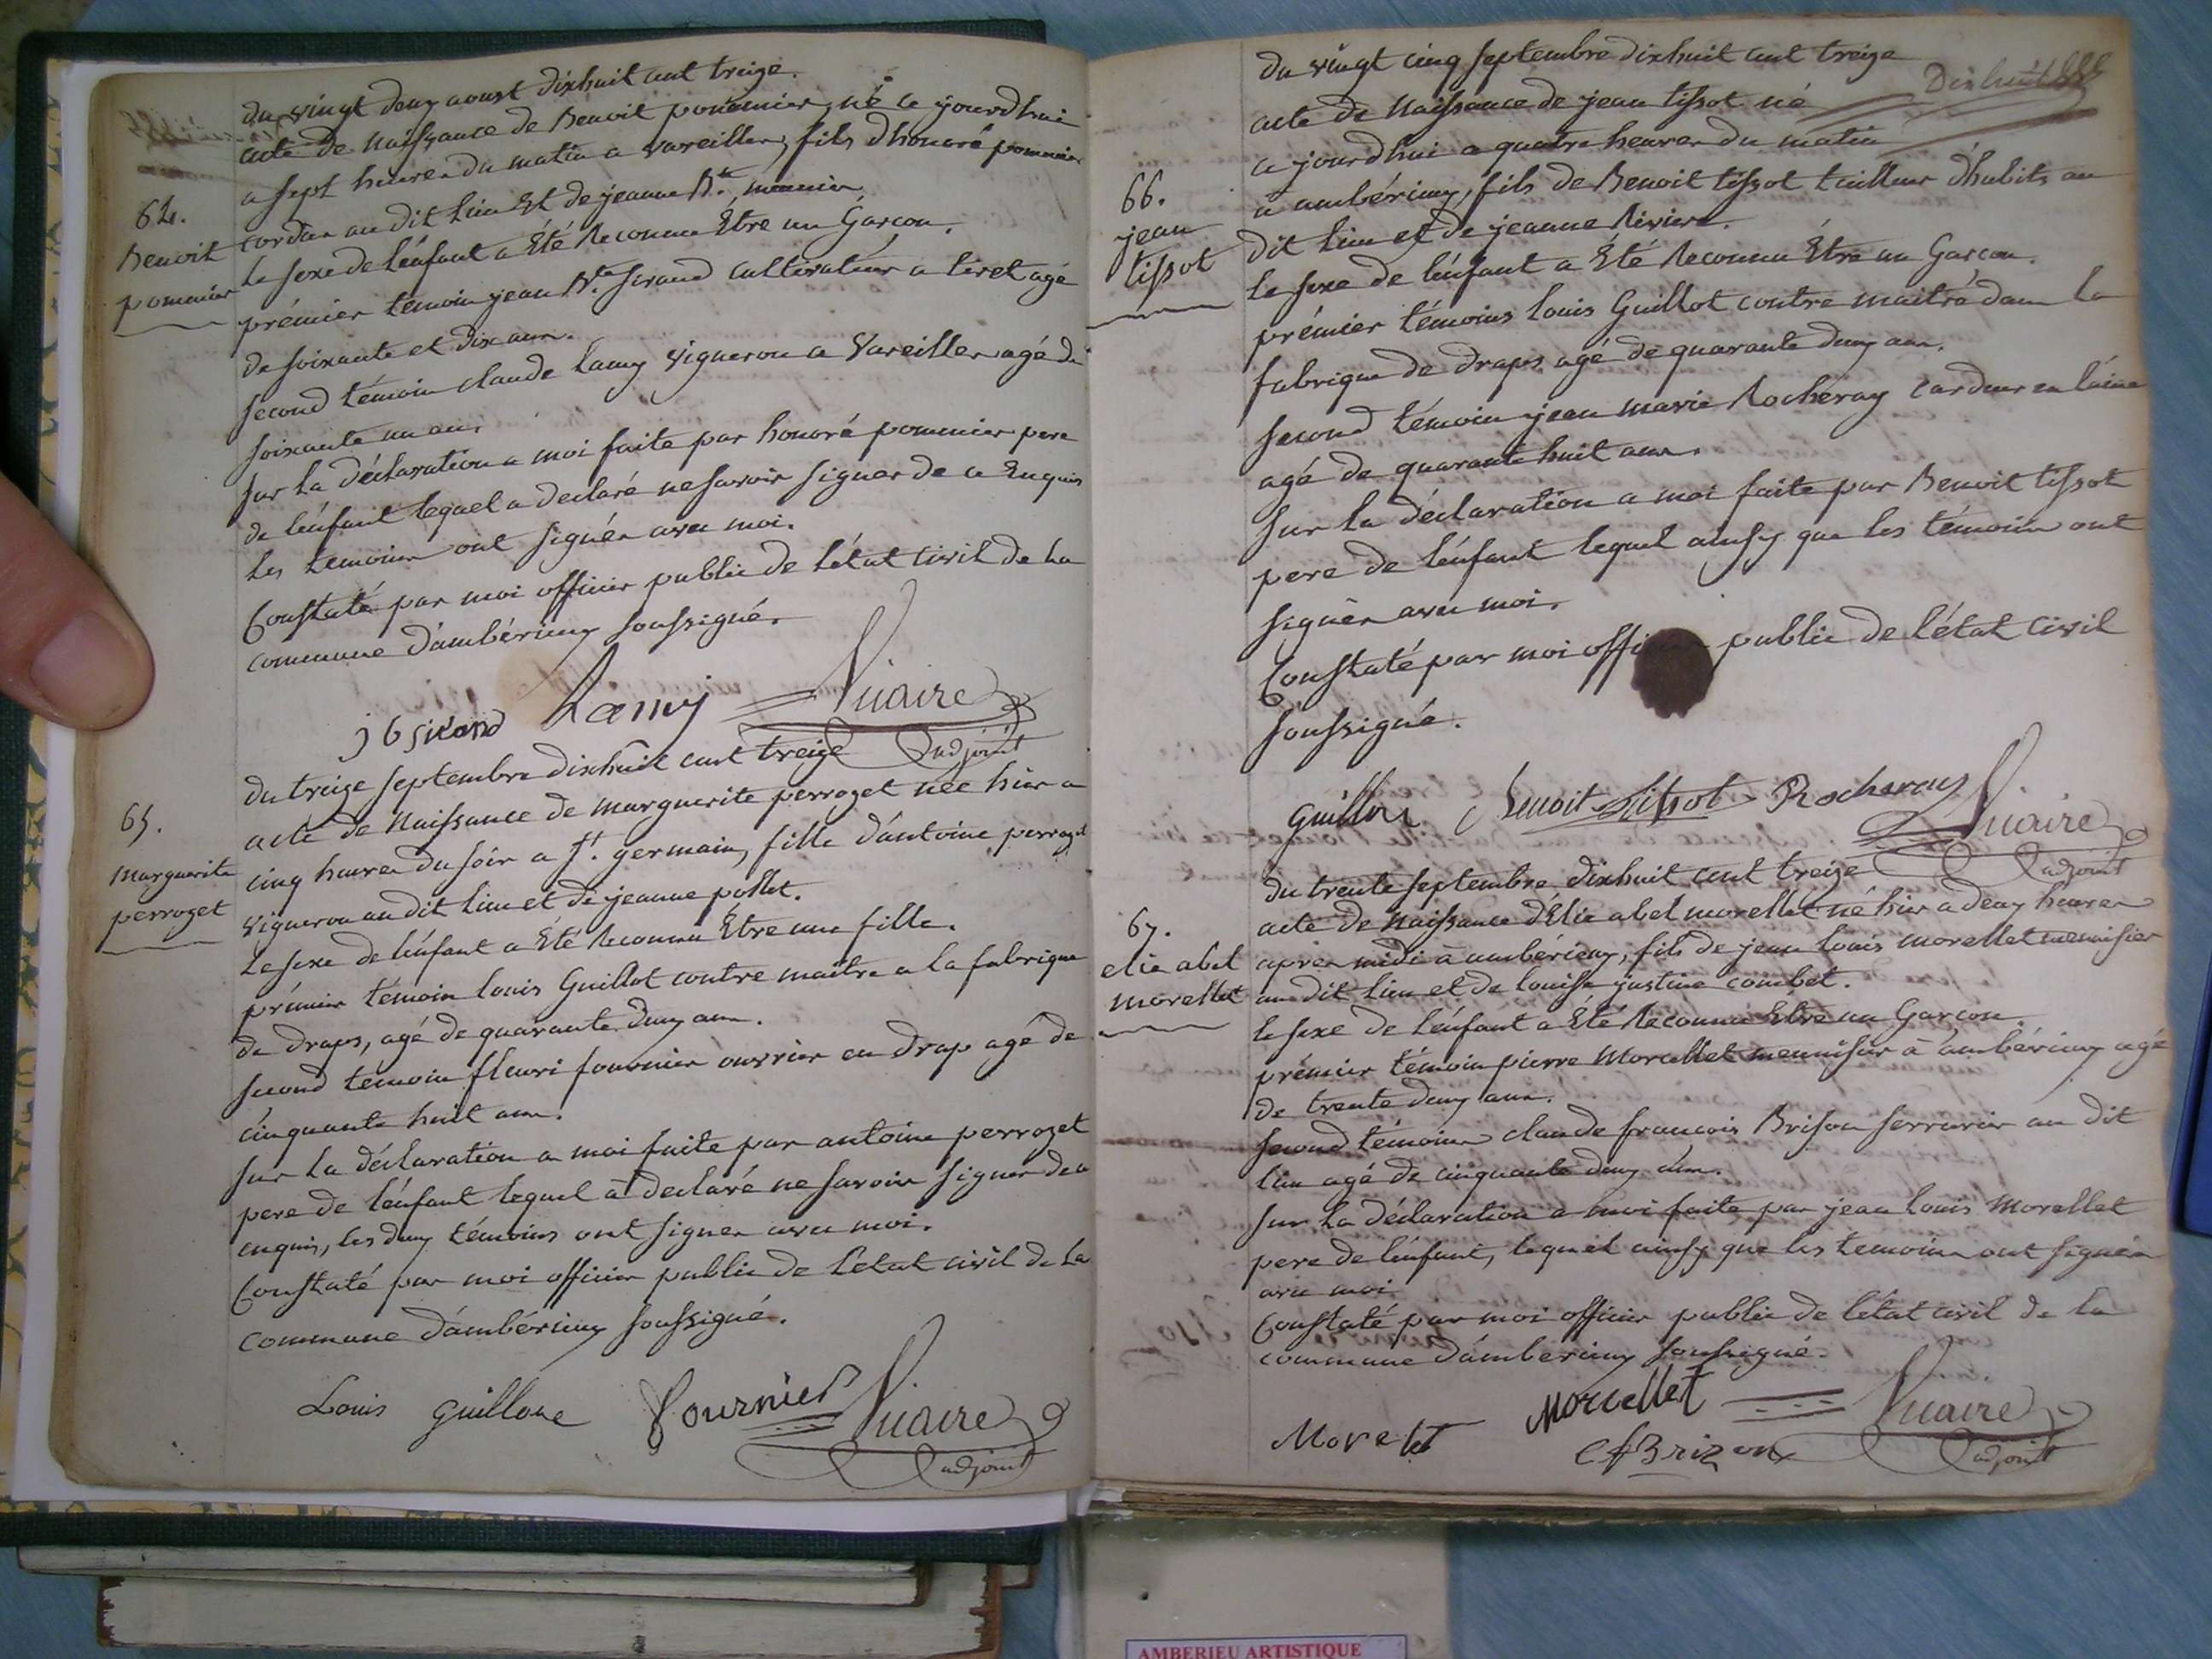 du vingt deux aoust dixhuit cent treize.
acte de Naissance de Benoit pommier, né ce jourdhui
a sept heures du matin a vareilles, fils dhonoré pommier
cordier au dit lieu Et de jeanne Bte. meunier
le sexe de lénfant a Été Reconnu Être un Garcon.
prémier témoin jean Bte. sirand cultivateur a tiret agé
de soixante et dix ans.
second témoin claude Lamy vigneron a Vareilles agé de
soixante un ans.
sur la déclaration a moi faite par honoré pommier pere
de lénfant lequel a declaré ne savoir signer de ce Enquis
les temoins ont signés avec moi.
Constaté par moi officier public de l'état civil de la
commune d'ambérieux soussigné.
64.
Benoit
pommier
jb sirand Lamy Vicaire
adjoint
du treize septembre dixhuit cent treize
acte de Naissance de marguerite perrozet née hier a
cinq heures du soir a St. germain, fille d'antoine perrozet
vigneron au dit lieu et de jeanne pollet.
Le sexe de lénfant a Été Reconnu Etre une fille.
prémier témoin louis Guillot contre maitre a la fabrique
de draps, agé de quarante deux ans.
second temoin fleuri fournier ouvrier en drap agé de
cinquante huit ans.
sur la déclaration a moi faite par antoine perrozet
pere de lénfant lequel a declaré ne savoir signer de ce
enquis, les deux témoins ont signer avec moi.
Constaté par moi officier public de l'etat civil de la
commune d'ambérieux soussigné.
65.
marguerite
perrozet
Louis guillone fournier Vicaire
adjoint
Dixhuit
du vingt cinq septembre dixhuit cent treize
acte de Naissance de jean tissot né
ce jourdhui a quatre heures du matin
à ambérieux, fils de Benoit tissot tailleur d'habits au
dit lieu et de jeanne Riviere.
le sexe de lénfant a Été Reconnu Être un Garcon.
prémier témoins louis Guillot contre maitre dans la
fabrique de draps agé de quarante deux ans.
second témoin jean marie Rocheray cardeur en laine
agé de quarante huit ans.
sur la déclaration a moi faite par Benoit tissot
pere de lénfant lequel ainsy que les témoins ont
signés avec moi.
Constaté par moi public de l'état civil
soussigné.
66.
jean
tissot
guillou Benoit tissot Rocheray Vicaire
adjoint
du trente septembre dixhuit cent treize
acte de Naissance d'Elie abel morellet né hier a deux heures
apres midi à ambérieux, fils de jean louis morellet menuisier
au dit lieu et de louise justine combet.
le sexe de lénfant a Été Reconnu Etre un Garcon.
prémier témoin pierre Morcellet menuisier à ambérieux agé
de trente deux ans.
second témoins claude francois Brison serrurier au dit
lieu agé de cinquante deux ans.
sur la déclaration a moi faite par jean louis Morellet
pere de lénfant, lequel ainsy que les temoins ont signés
avec moi
Constaté par moi officier public de létat civil de la
commune d'amberieux soussigné.
67.
elie abel
morellet
Morelet Morcellet Vicaire
cf Brizon adjoint
AMBERIEU ARTISTIQUE